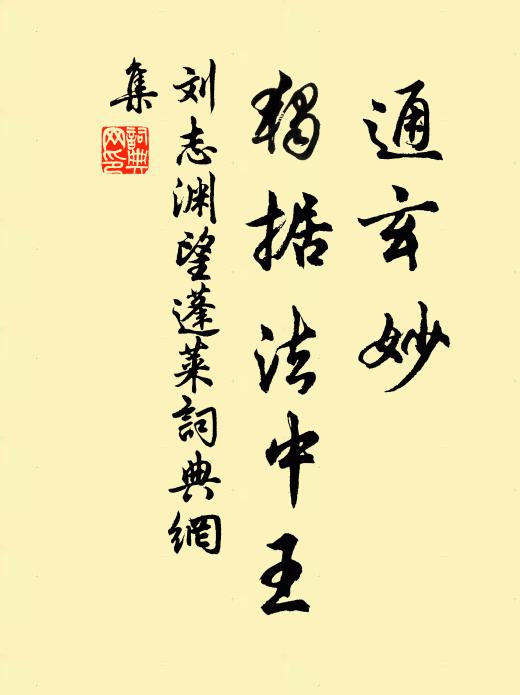 通玄妙
独据法中王
刘志渊望蓬莱詞典網
集
詞典
网印